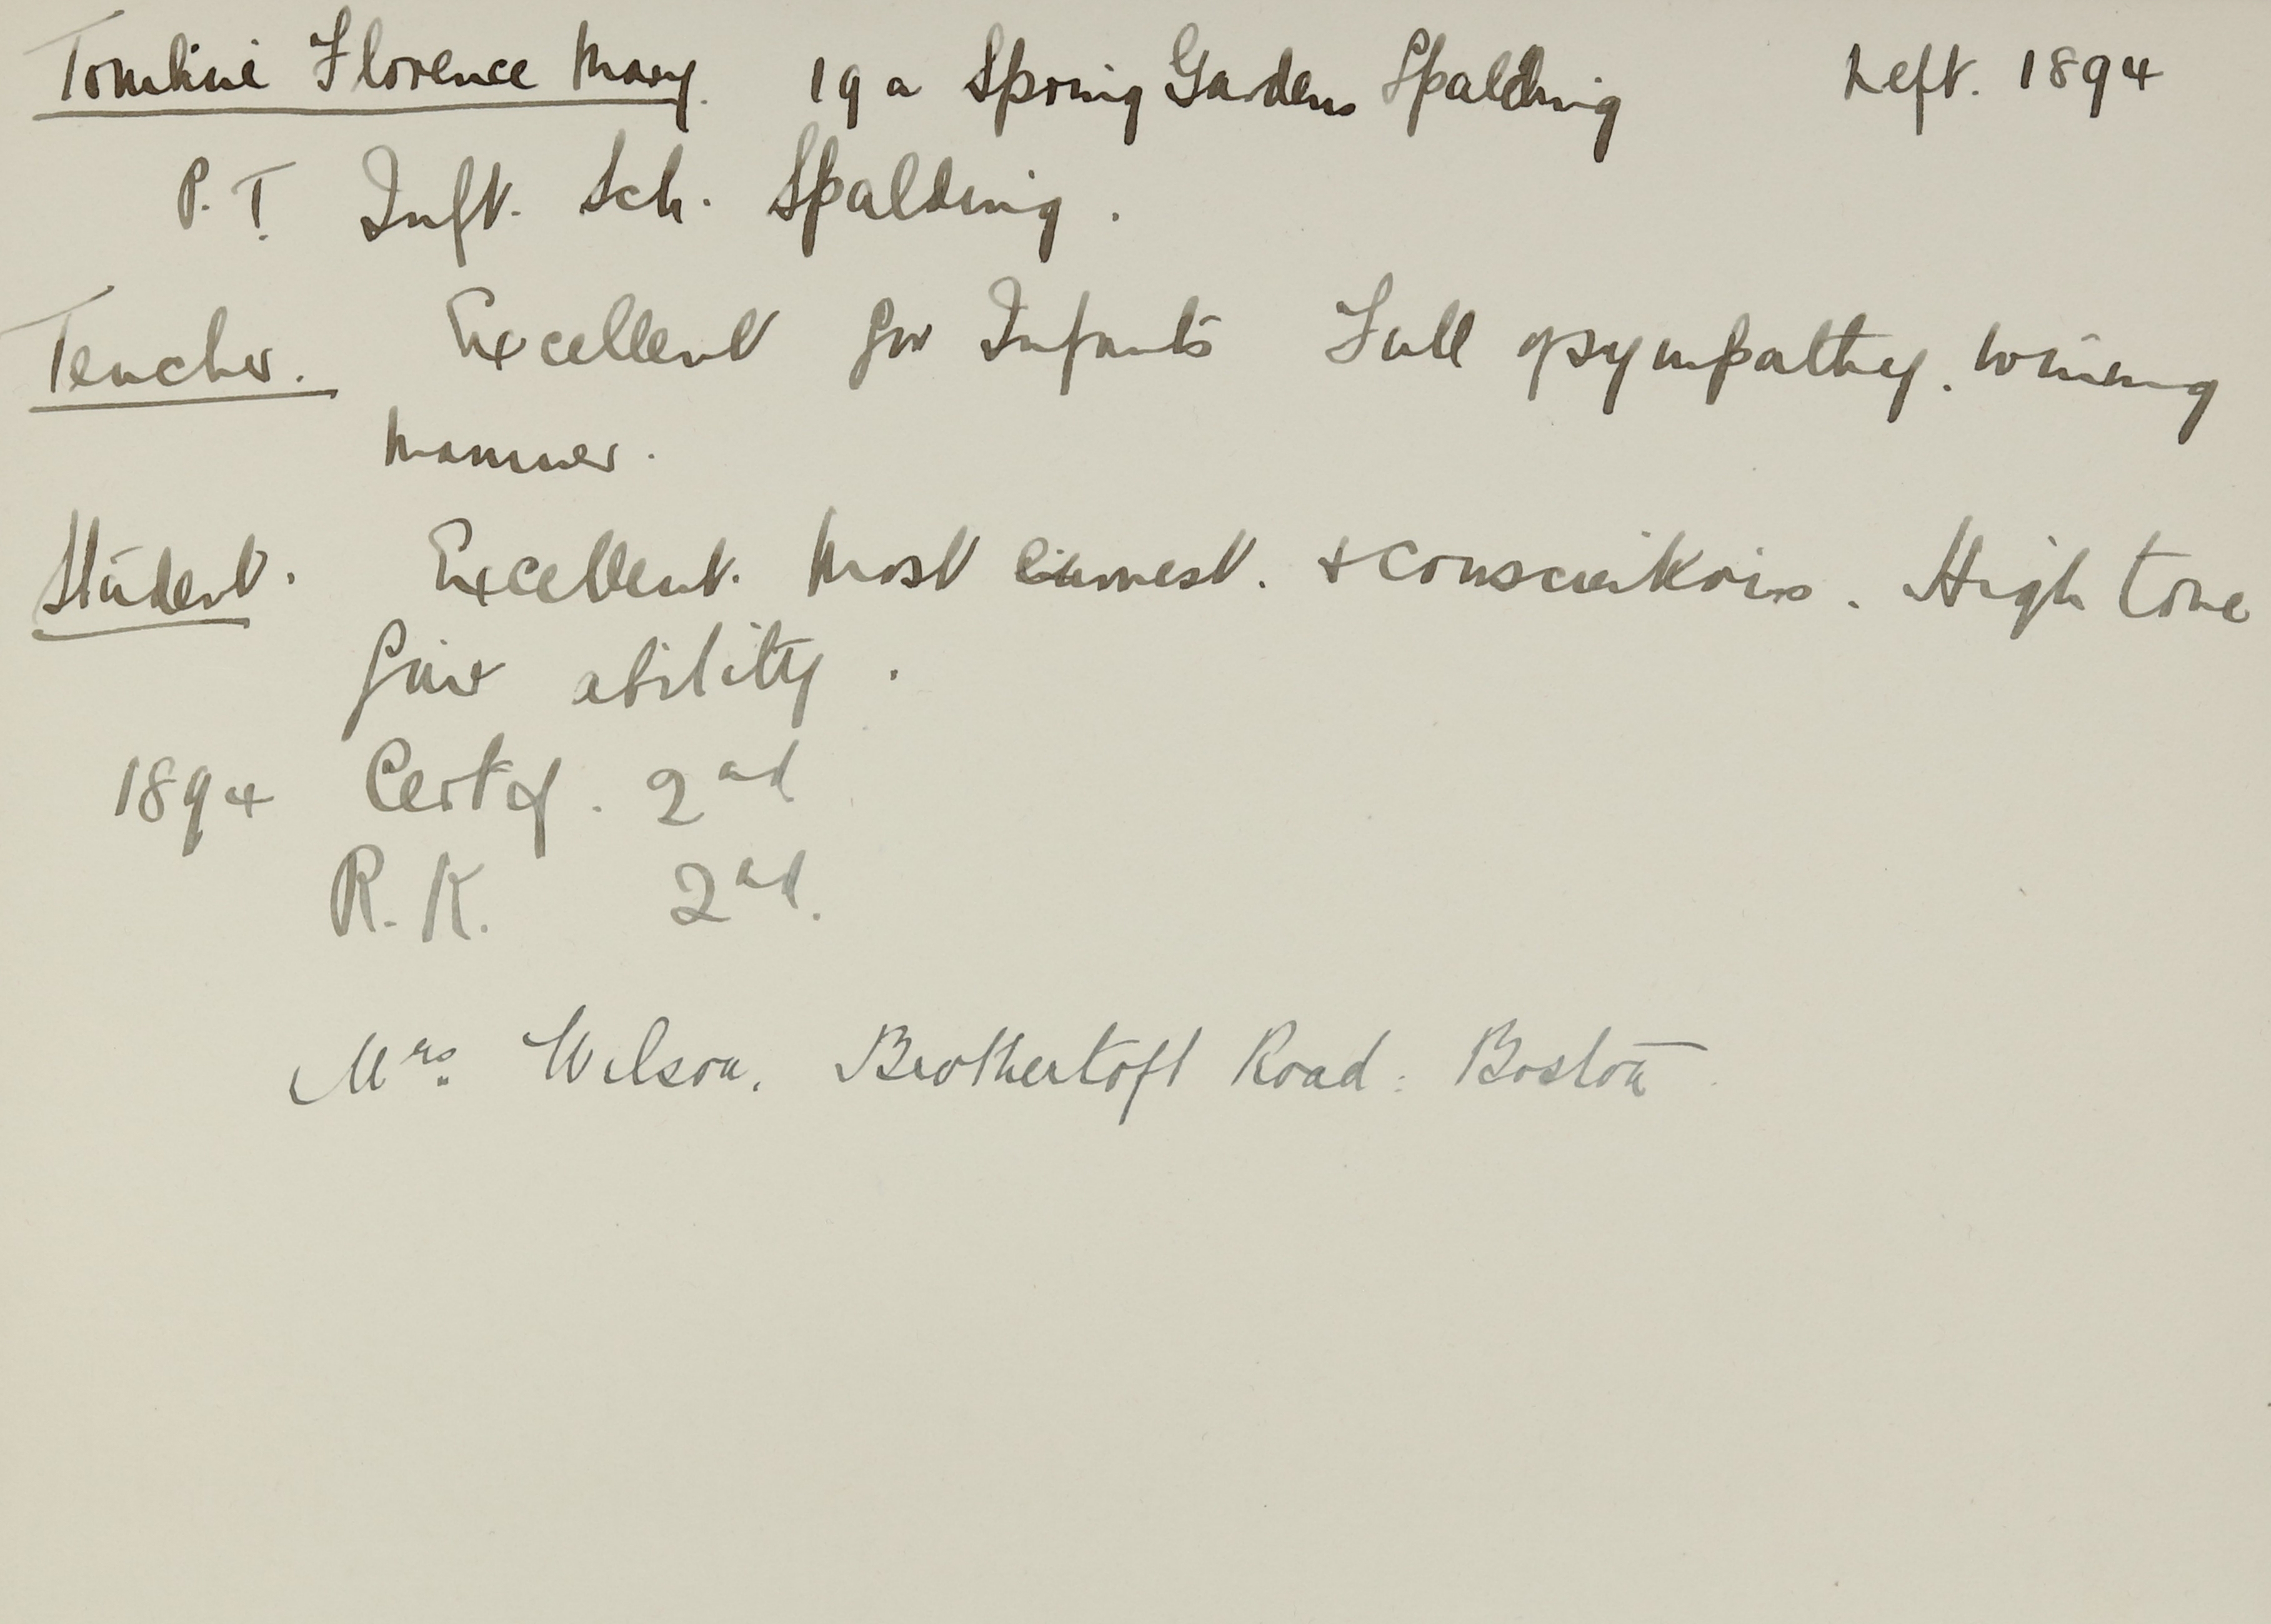 Tomline Florence Mary. 19a Spring Gardens Spalding Left. 1894
P.T. Inft. Sch. Spalding.
Teacher. Excellent for Infants Full of sympathy. Winning
manner.
Student. Excellent. Most earnest. + conscientious. High tone
fair ability.
1894 Certif. 2nd
R.K. 2nd.
Mrs. Wilson. Brothertoft Road. Boston